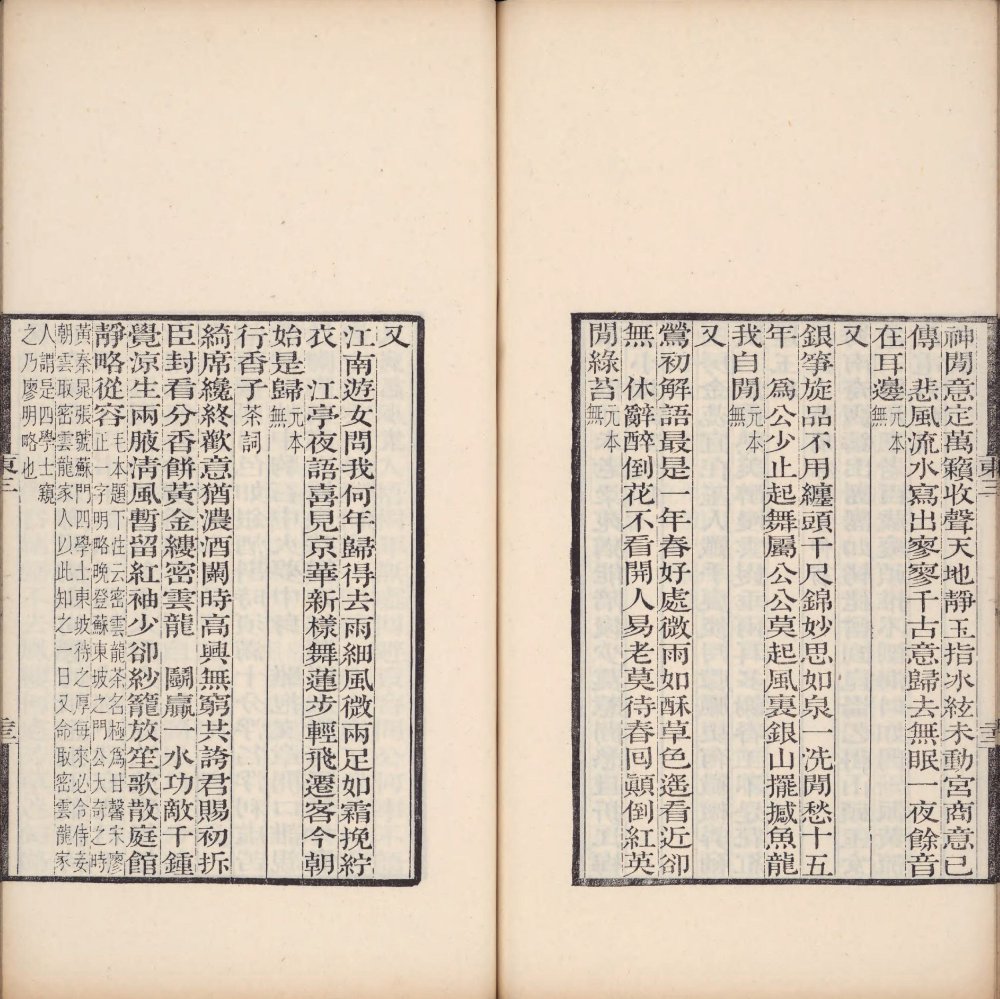 神閒意定萬籟收聲天地靜玉指冰絃未動宮商意已
傳　悲風流水寫出寥寥千古意歸去無眠一夜餘音
在耳邊 元本無
又
銀箏旋品不用纏頭千尺錦妙思如泉一洗閒愁十五
年　爲公少止起舞屬公公莫起風裏銀山擺撼魚龍
我自閒 元本無
又
鶯初解語最是一年春好處微雨如酥草色遙看近卻
無　休辭醉倒花不看開人易老莫待春回顛倒紅英
閒綠苔 元本無
又
江南遊女問我何年歸得去雨細風微兩足如霜挽紵
衣　江亭夜語喜見京華新樣舞蓮步輕飛遷客今朝
始是歸 元本無
行香子 茶詞
綺席纔終歡意猶濃酒闌時高興無窮共誇君賜初拆
臣封看分香餅黃金縷密雲龍　鬬贏一水功敵千鍾
覺涼生兩腋清風暫留紅袖少卻紗籠放笙歌散庭館
靜略從容 毛本題下注云密雲龍茶名極爲甘馨宋廖
正一字明略晚登蘇東坡之門公大奇之時
黃秦晁張號蘇門四學士東坡待之厚每來必令侍妾
朝雲取密雲龍家人以此知之一日又命取密雲龍家
人謂是四學士窺
之乃廖明略也